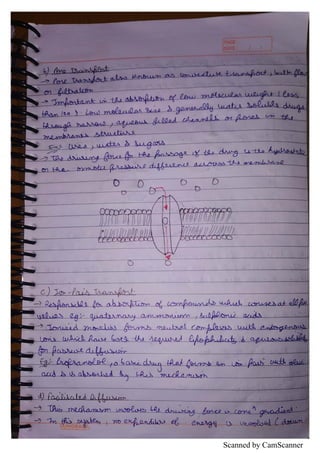 PAGE
DATE
b) Pore Transport
→ Pore Transport also known as convective transport, bulk flow
or filtration
→ Important in the absorption of low molecular weight (less
than 100) low molecular size & generally water soluble drugs
through narrow, aqueous filled channels or pores in the
membrane structure
Eg: Urea, water & sugars
→ The driving force for the passage of the drug is the hydrostatic
or the osmotic pressure difference across the membrane
c) Ion-Pair Transport
→ Responsible for absorption of compounds which at all pH
values eg:- quaternary ammonium, sulphonic acids
→ Ionised moieties forms neutral complexes with endogenous
ions which have both the required lipophilicity & aqueous solubility
for passive diffusion
Eg: Propranolol, a basic drug that forms an ion pair with oleic
acid & is absorbed by this mechanism
d) Facilitated Diffusion
→ This mechanism involves the driving force is concⁿ gradient
→ In this system, no expenditure of energy is involved (down
Scanned by CamScanner